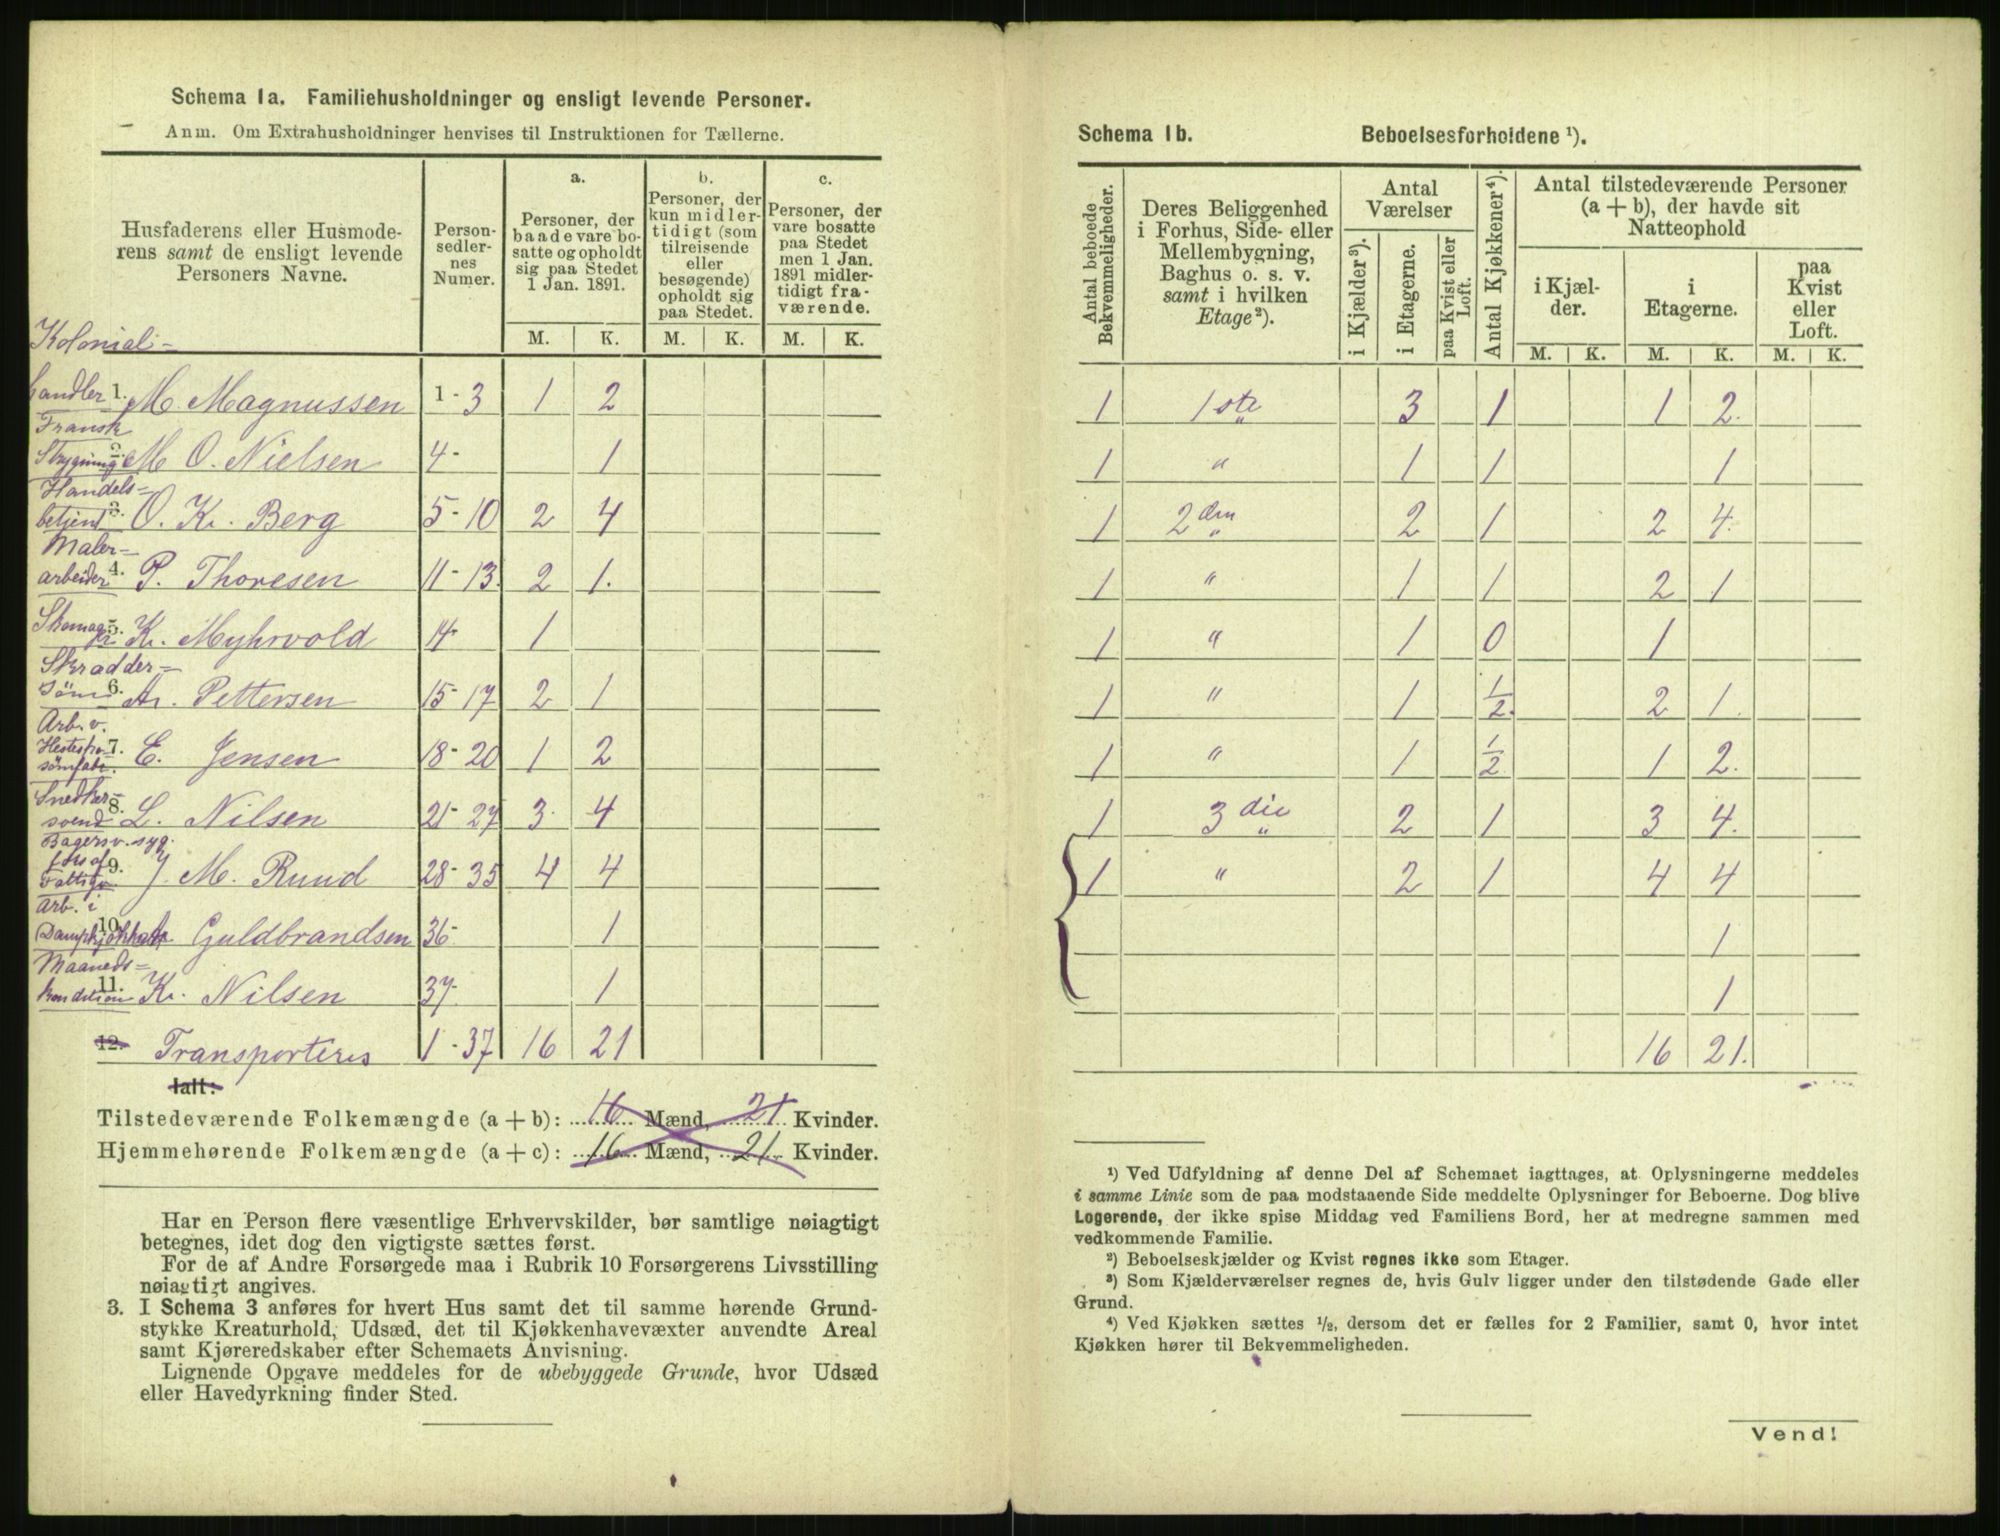 Schema 1a. Familiehusholdninger og ensligt levende Personer.
Anm. Om Extrahusholdninger henvises til Instruktionen for Tællerne.
Husfaderens eller Husmoderens samt de ensligt levende Personers Navne.
Personsedlernes Numer.
a. Personer, der baade vare bosatte og opholdt sig paa Stedet 1 Jan. 1891.
b. Personer, der kun midlertidigt (som tilreisende eller besøgende) opholdt sig paa Stedet.
c. Personer, der vare bosatte paa Stedet men 1 Jan. 1891 midlertidigt fraværende.
M. K. M. K. M. K.
Kolonial-
handler 1. M. Magnussen 1-3 1 2
Fransk
Strygning 2. M O. Nielsen 4- 1
Handels-
betjent 3. O. Kr. Berg 5-10 2 4
Maler-
arbeider 4. P. Thoresen 11-13. 2 1.
5. K. Myhrvold 14- 1
Skradder-
6. Pettersen 15-17 2 1
Arb. v.
7. E. Jensen 18-20 1 2
Snedker-
svend 8. L. Nilsen 21-27 3. 4
Bagersv. syg.
9. J. M. Ruud 28-35 4 4
Arb. i
10. Guldbrandsen 36- 1
Maaneds-
kondition 11. K. Nilsen 37- 1
12. Transporteres 1-37 16 21
Ialt:
Tilstedeværende Folkemængde (a + b): 16 Mænd, 21 Kvinder.
Hjemmehørende Folkemængde (a + c): 16 Mænd, 21 Kvinder.
Har en Person flere væsentlige Erhvervskilder, bør samtlige nøiagtigt
betegnes, idet dog den vigtigste sættes først.
For de af Andre Forsørgede maa i Rubrik 10 Forsørgerens Livsstilling
nøiagtigt angives.
3. I Schema 3 anføres for hvert Hus samt det til samme hørende Grund-
stykke Kreaturhold, Udsæd, det til Kjøkkenhavevæxter anvendte Areal
samt Kjøreredskaber efter Schemaets Anvisning.
Lignende Opgave meddeles for de ubebyggede Grunde, hvor Udsæd
eller Havedyrkning finder Sted.
Schema 1b. Beboelsesforholdene ¹).
Antal beboede Bekvemmeligheder.
Deres Beliggenhed i Forhus, Side- eller Mellembygning, Baghus o. s. v. samt i hvilken Etage²).
Antal Værelser
i Kjælder³).
i Etagerne.
paa Kvist eller Loft.
Antal Kjøkkener⁴).
Antal tilstedeværende Personer (a + b), der havde sit Natteophold
i Kjælder.
i Etagerne.
paa Kvist eller Loft.
M. K. M. K. M. K.
1 1ste " 3 1 1 2.
1 " 1 1 1
1 2den " 2 1 2 4.
1 " 1 1 2 1
1 " 1 0 1
1 " 1 1/2. 2 1.
1 " 1 1/2 1 2.
1 3die " 2 1 3 4.
1 " 2 1 4 4
1
1
16 21.
¹) Ved Udfyldning af denne Del af Schemaet iagttages, at Oplysningerne meddeles
i samme Linie som de paa modstaaende Side meddelte Oplysninger for Beboerne. Dog blive
Logerende, der ikke spise Middag ved Familiens Bord, her at medregne sammen med
vedkommende Familie.
²) Beboelseskjælder og Kvist regnes ikke som Etager.
³) Som Kjælderværelser regnes de, hvis Gulv ligger under den tilstødende Gade eller
Grund.
⁴) Ved Kjøkken sættes ½, dersom det er fælles for 2 Familier, samt 0, hvor intet
Kjøkken hører til Bekvemmeligheden.
Vend!